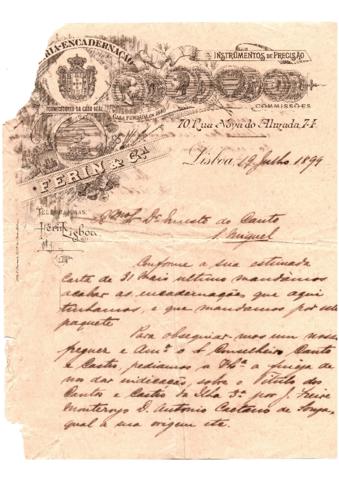 RIA-ENCADERNAÇÃO
INSTRUMENTOS DE PRECISÃO
FORNECEDORES DA CASA REAL
CASA FUNDADA EM
COMMISSÕES
70, Rua Nova do Almada, 74
FERIN & Cª
Lisboa, 19 Julho 1899
TELEGRAMMAS
Ferin Lisboa
Dr. Ernesto do Canto
S. Miguel
Conforme a sua estimada
carta de 31 Maio ultimo mandámos
acabar as encadernações que aqui
tinhamos, e que mandamos por este
paquete.
Para obsequiar-mos um nosso
freguez e Amº o Sr Conselheiro Canto
e Castro, pediamos a Vª a fineza de
nos dar indicação sobre o Titulo dos
Cantos e Castros da Ilha 3ª por J. Freire
Monterroyo D. Antonio Caetano de Souza,
qual a sua origem etc.